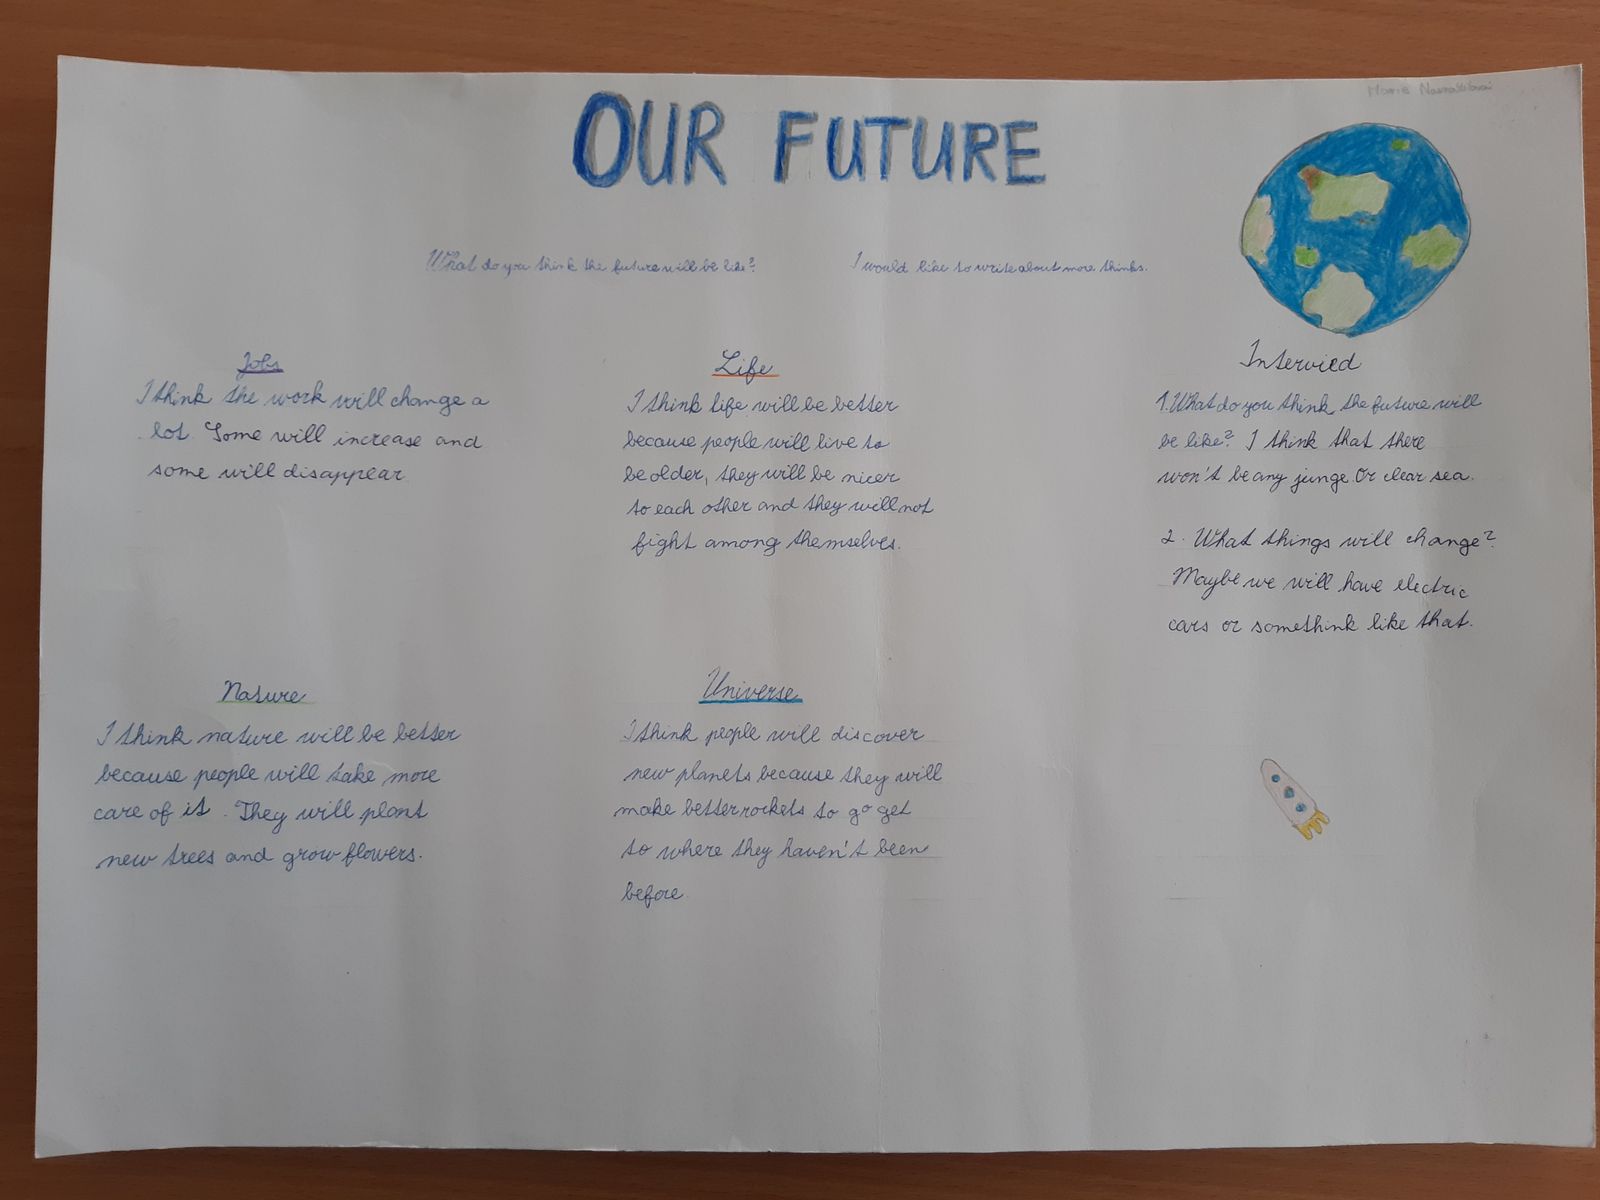 Marie
OUR FUTURE
What do you think the future will be like?
I would like to write about more thinks.
Jobs
I think the work will change a
lot. Some will increase and
some will disappear
Life
I think life will be better
because people will live to
be older, they will be nicer
to each other and they will not
fight among themselves.
Intervied
1. What do you think the future will
be like? I think that there
won't be any junge Or clear sea.
2. What things will change?
Maybe we will have electric
cars or somethink like that.
Nature
I think nature will be better
because people will take more
care of it. They will plant
new trees and grow flowers.
Universe
I think people will discover
new planets because they will
make better rockets to go get
to where they haven't been
before